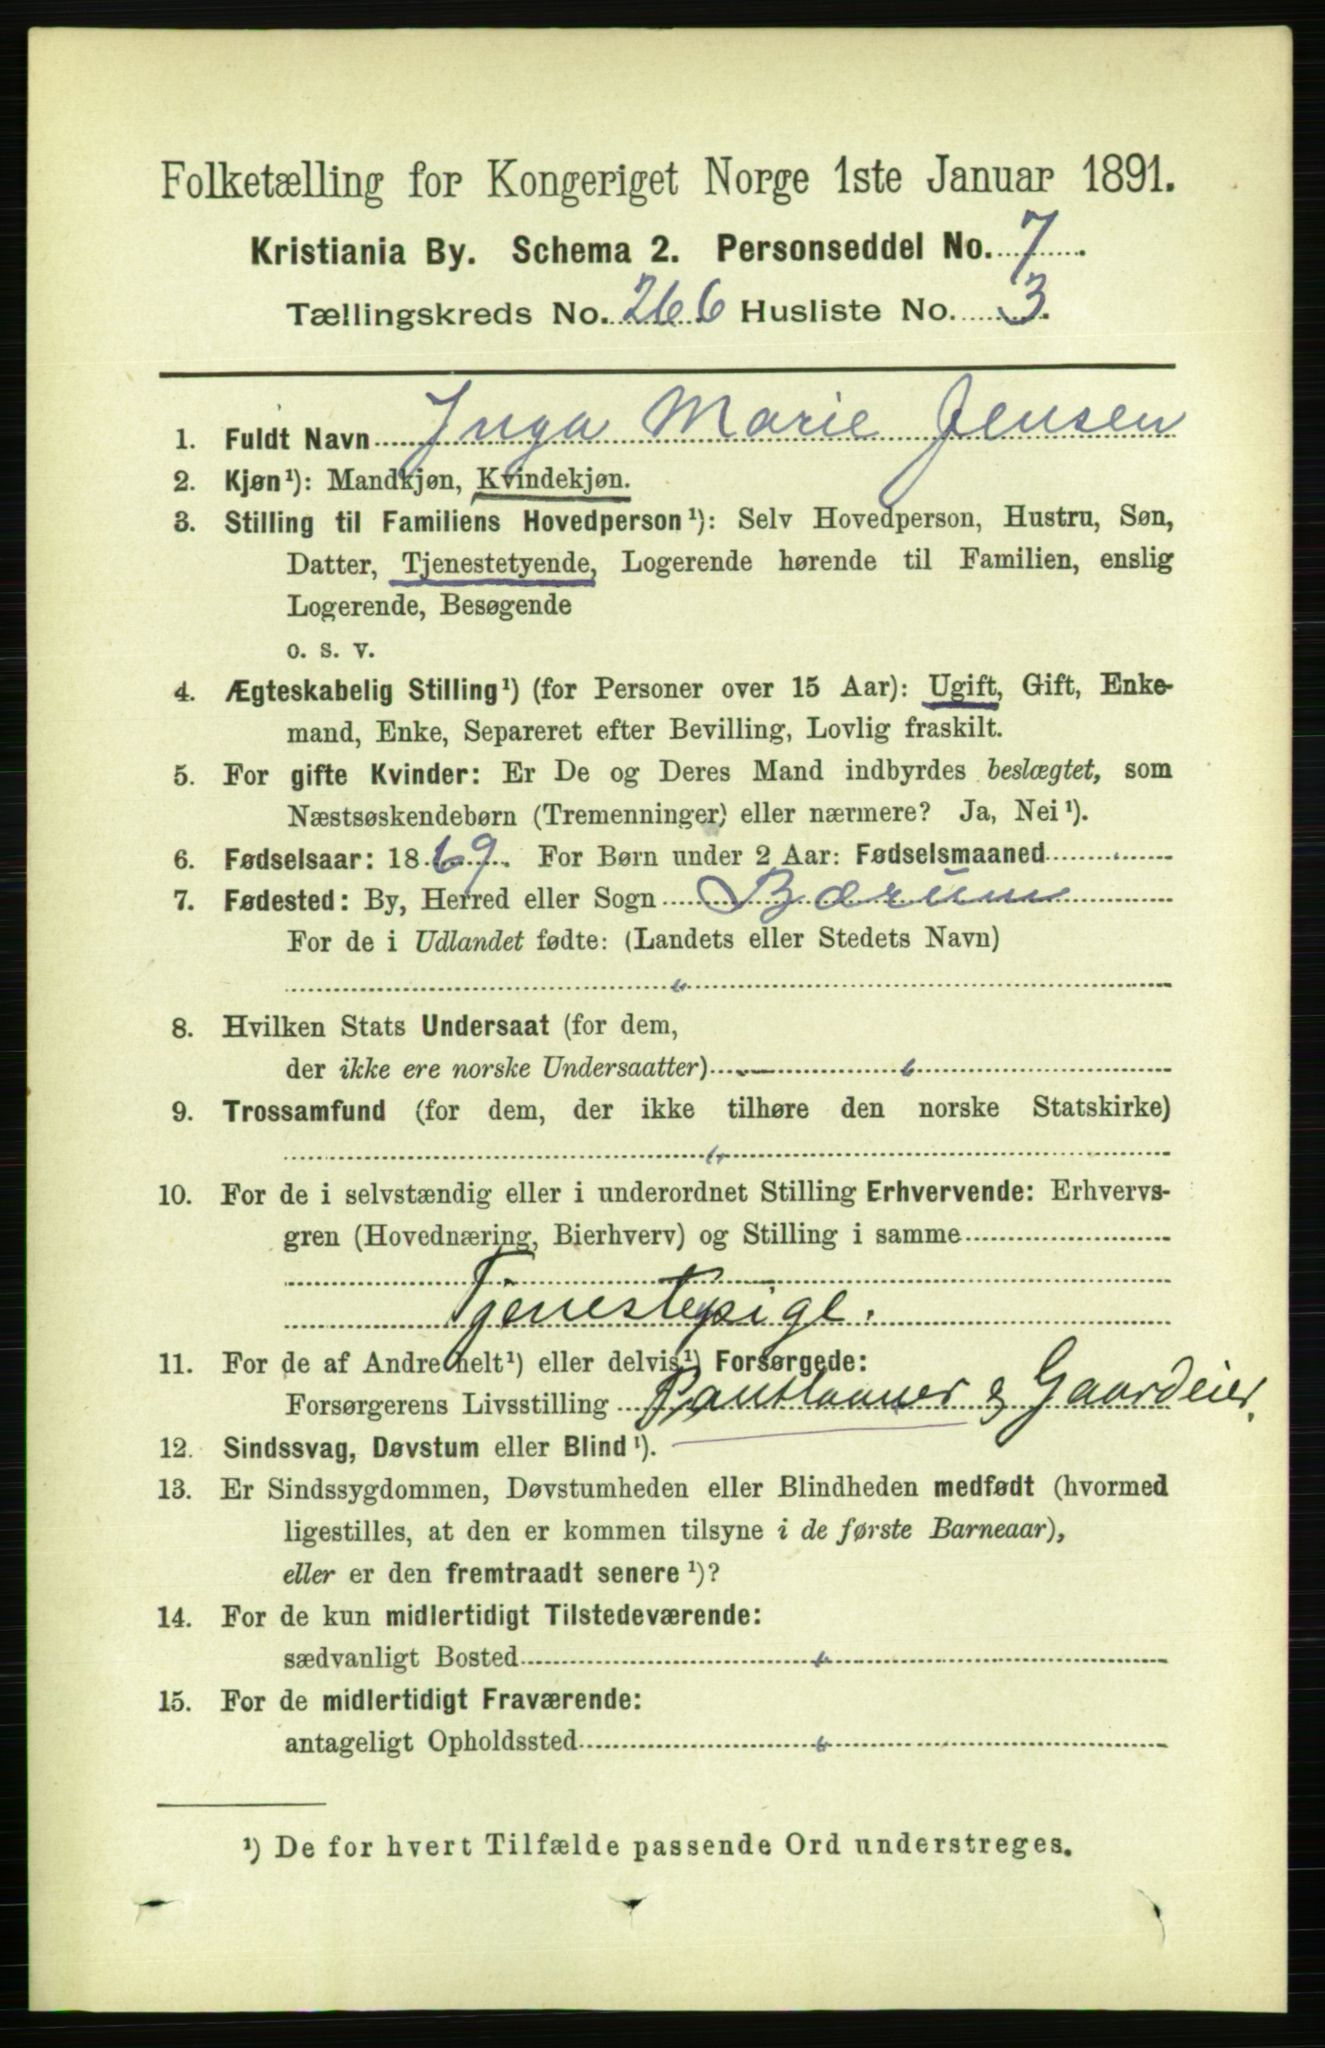 Folketælling for Kongeriget Norge 1ste Januar 1891.
Kristiania By. Schema 2. Personseddel No. 7
Tællingskreds No. 266 Husliste No. 3
1. Fuldt Navn Inga Marie Jensen
2. Kjøn¹): Mandkjøn, Kvindekjøn.
3. Stilling til Familiens Hovedperson¹): Selv Hovedperson, Hustru, Søn,
Datter, Tjenestetyende, Logerende hørende til Familien, enslig
Logerende, Besøgende
o. s. v.
4. Ægteskabelig Stilling¹) (for Personer over 15 Aar): Ugift, Gift, Enke-
mand, Enke, Separeret efter Bevilling, Lovlig fraskilt.
5. For gifte Kvinder: Er De og Deres Mand indbyrdes beslægtet, som
Næstsøskendebørn (Tremenninger) eller nærmere? Ja, Nei¹).
6. Fødselsaar: 1869. For Børn under 2 Aar: Fødselsmaaned
7. Fødested: By, Herred eller Sogn Bærum
For de i Udlandet fødte: (Landets eller Stedets Navn)
8. Hvilken Stats Undersaat (for dem,
der ikke ere norske Undersaatter)
9. Trossamfund (for dem, der ikke tilhøre den norske Statskirke)
10. For de i selvstændig eller i underordnet Stilling Erhvervende: Erhvervs-
gren (Hovednæring, Bierhverv) og Stilling i samme
Tjenestepige.
11. For de af Andre helt¹) eller delvis¹) Forsørgede:
Forsørgerens Livsstilling Pantlaaner & Gaardeier.
12. Sindssvag, Døvstum eller Blind¹).
13. Er Sindssygdommen, Døvstumheden eller Blindheden medfødt (hvormed
ligestilles, at den er kommen tilsyne i de første Barneaar),
eller er den fremtraadt senere¹)?
14. For de kun midlertidigt Tilstedeværende:
sædvanligt Bosted
15. For de midlertidigt Fraværende:
antageligt Opholdssted
¹) De for hvert Tilfælde passende Ord understreges.